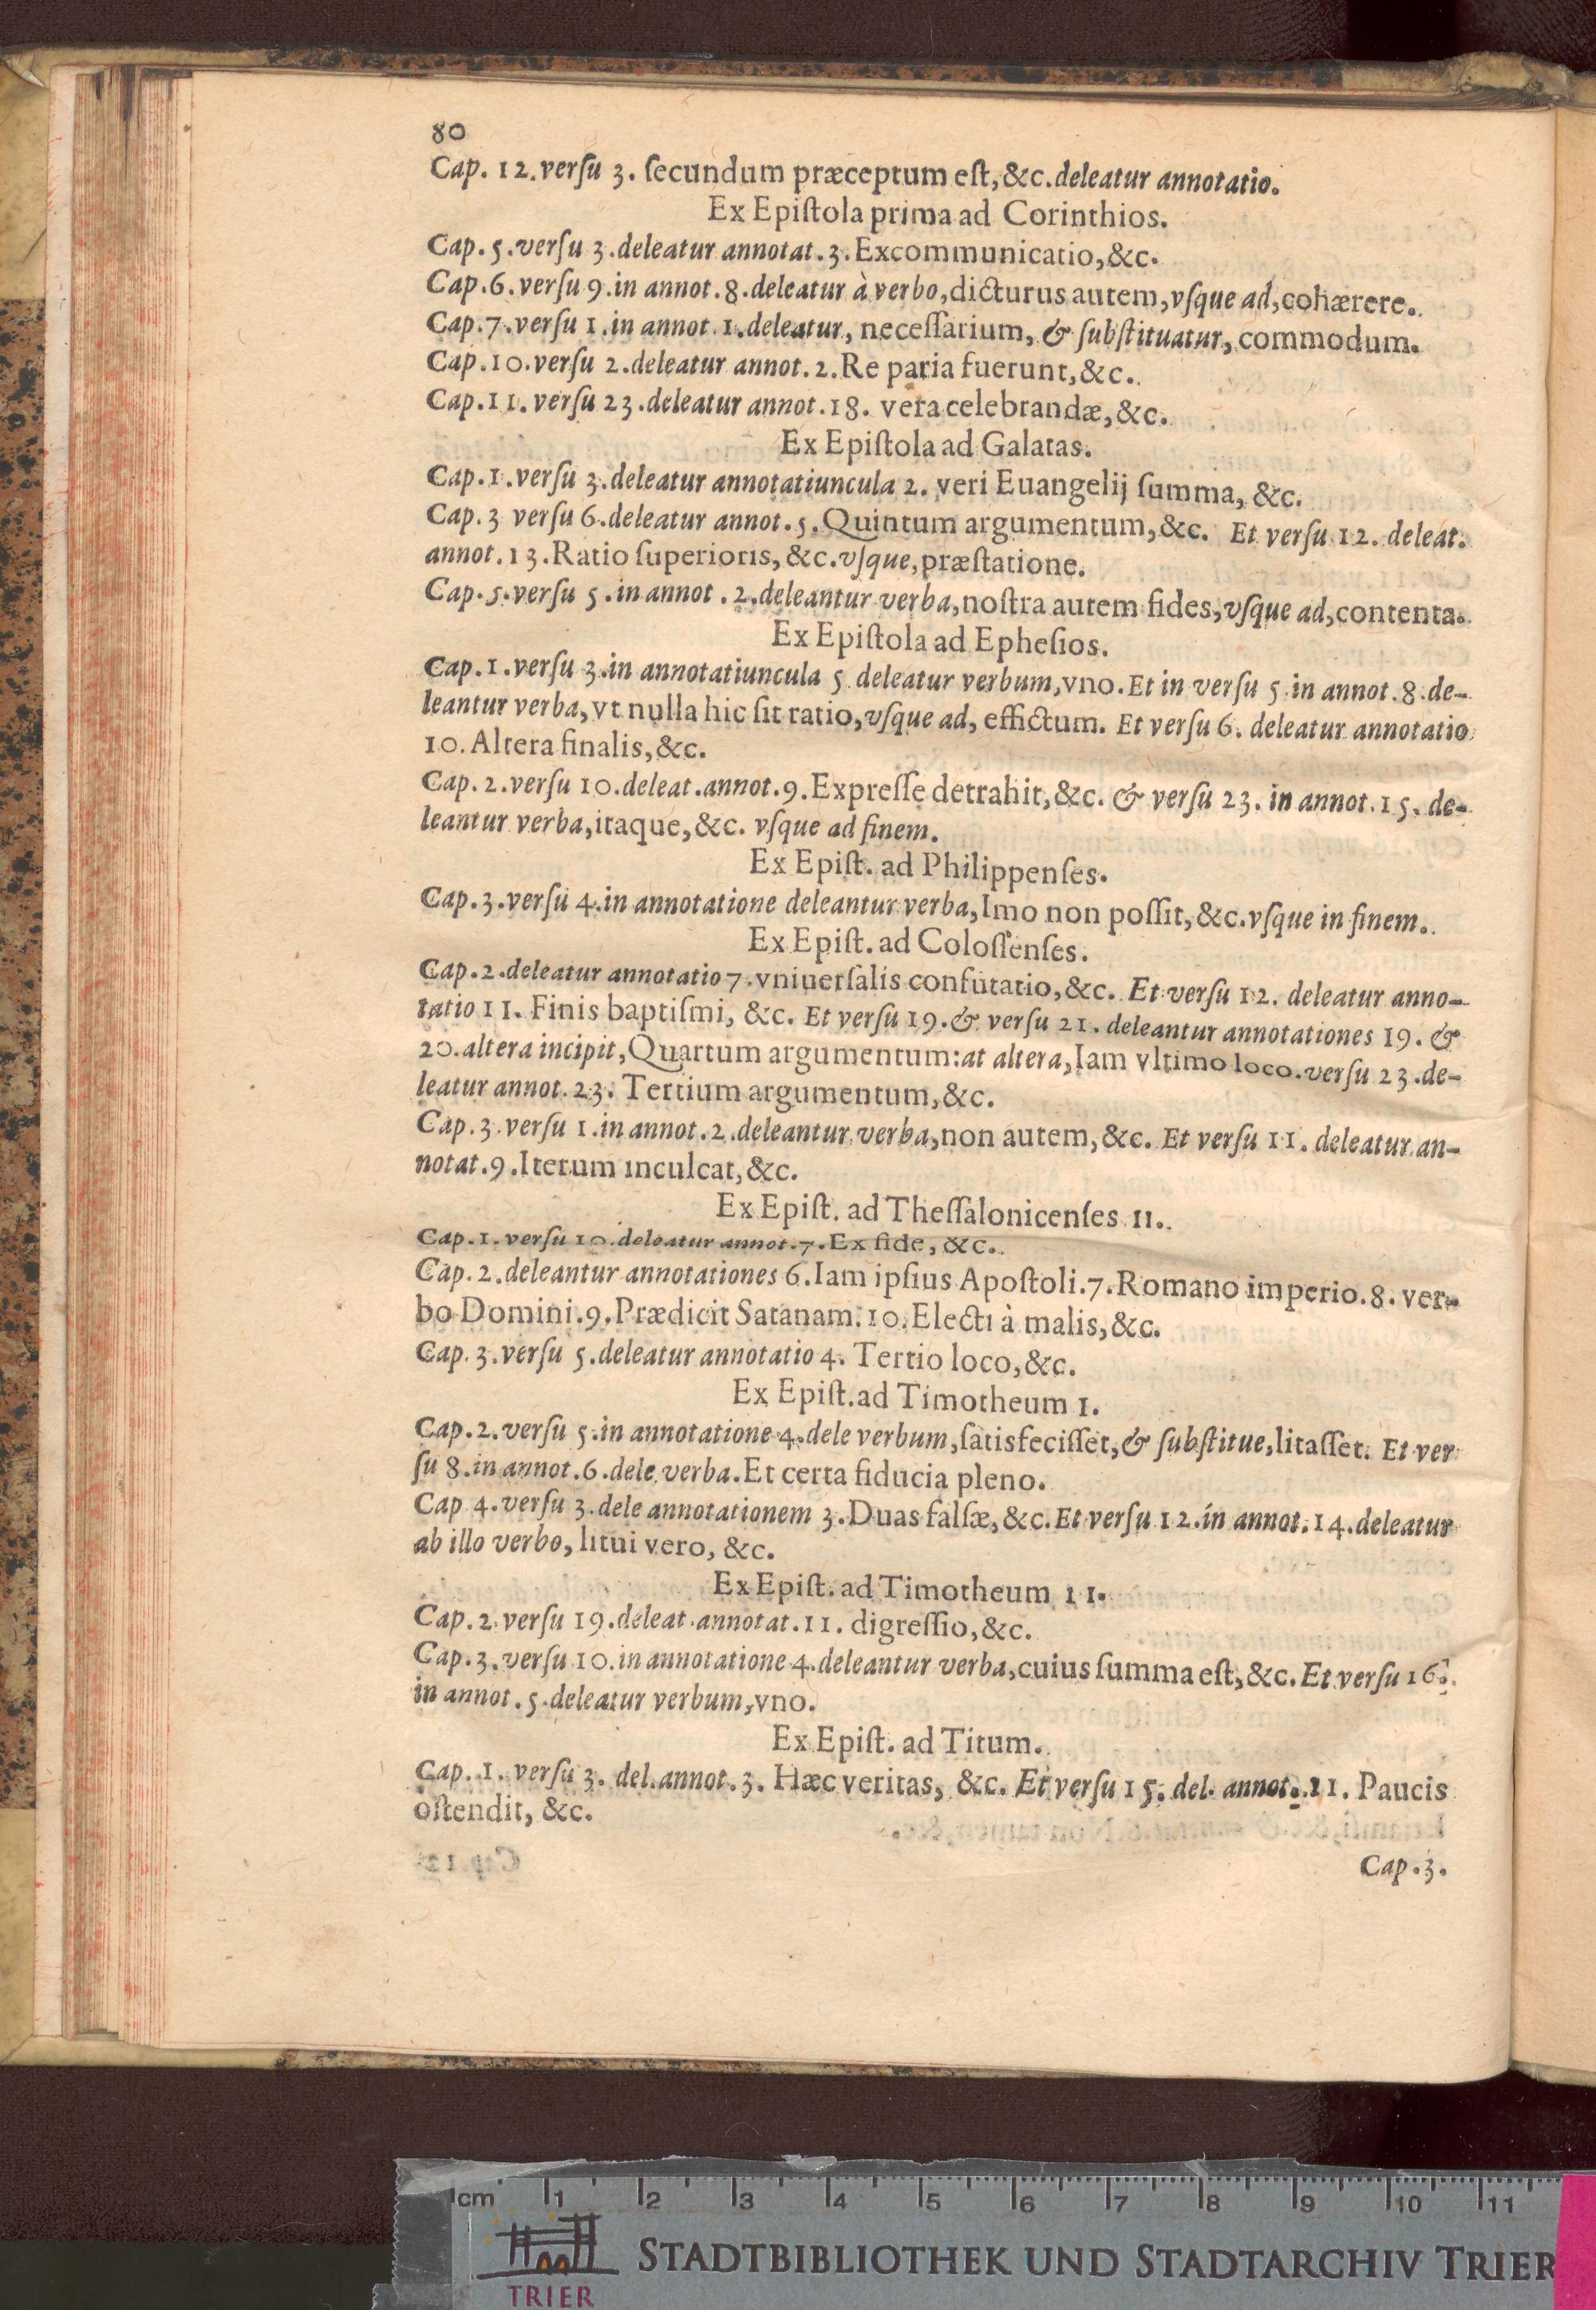 80
Cap. 12. verſu 3. ſecundum præceptum eſt, &c. deleatur annotatio.
Ex Epiſtola prima ad Corinthios.
Cap. 5. verſu 3. deleatur annotat. 3. Excommunicatio, &c.
Cap. 6. verſu 9. in annot. 8. deleatur à verbo, dicturus autem, vſque ad, cohærere.
Cap. 7. verſu 1. in annot. 1. deleatur, neceſſarium, & ſubſtituatur, commodum.
Cap. 10. verſu 2. deleatur annot. 2. Re paria fuerunt, &c.
Cap. 11. verſu 23. deleatur annot. 18. vera celebrandæ, &c.
Ex Epiſtola ad Galatas.
Cap. 1. verſu 3. deleatur annotatiuncula 2. veri Euangelij ſumma, &c.
Cap. 3 verſu 6. deleatur annot. 5. Quintum argumentum, &c. Et verſu 12. deleat.
annot. 13. Ratio ſuperioris, &c. vſque, præſtatione.
Cap. 5. verſu 5. in annot. 2. deleantur verba, noſtra autem fides, vſque ad, contenta.
Ex Epiſtola ad Epheſios.
Cap. 1. verſu 3. in annotatiuncula 5 deleatur verbum, vno. Et in verſu 5 in annot. 8. de-
leantur verba, vt nulla hic ſit ratio, vſque ad, effictum. Et verſu 6. deleatur annotatio
10. Altera finalis, &c.
Cap. 2. verſu 10. deleat. annot. 9. Expreſſe detrahit, &c. & verſu 23. in annot. 15. de-
leantur verba, itaque, &c. vſque ad finem.
Ex Epiſt. ad Philippenſes.
Cap. 3. verſu 4. in annotatione deleantur verba, Imo non poſſit, &c. vſque in finem.
Ex Epiſt. ad Coloſſenſes.
Cap. 2. deleatur annotatio 7. vniuerſalis confutatio, &c. Et verſu 12. deleatur anno-
tatio 11. Finis baptiſmi, &c. Et verſu 19. & verſu 21. deleantur annotationes 19. &
20. altera incipit, Quartum argumentum: at altera, Iam vltimo loco. verſu 23. de-
leatur annot. 23. Tertium argumentum, &c.
Cap. 3. verſu 1. in annot. 2. deleantur verba, non autem, &c. Et verſu 11. deleatur an-
notat. 9. Iterum inculcat, &c.
Ex Epiſt. ad Theſſalonicenſes 11.
Cap. 1. verſu 10. deleatur annot. 7. Ex fide, &c.
Cap. 2. deleantur annotationes 6. Iam ipſius Apoſtoli. 7. Romano imperio. 8. ver-
bo Domini. 9. Prædicit Satanam. 10. Electi à malis, &c.
Cap. 3. verſu 5. deleatur annotatio 4. Tertio loco, &c.
Ex Epiſt. ad Timotheum 1.
Cap. 2. verſu 5. in annotatione 4. dele verbum, ſatisfeciſſet, & ſubſtitue, litaſſet. Et ver
ſu 8. in annot. 6. dele verba. Et certa fiducia pleno.
Cap 4. verſu 3. dele annotationem 3. Duas falſæ, &c. Et verſu 12. in annot. 14. deleatur
ab illo verbo, litui vero, &c.
Ex Epiſt. ad Timotheum 11.
Cap. 2. verſu 19. deleat annotat. 11. digreſſio, &c.
Cap. 3. verſu 10. in annotatione 4. deleantur verba, cuius ſumma eſt, &c. Et verſu 16.
in annot. 5. deleatur verbum, vno.
Ex Epiſt. ad Titum.
Cap. 1. verſu 3. del. annot. 3. Hæc veritas, &c. Et verſu 15. del. annot. 11. Paucis
oſtendit, &c.
Cap. 3.
cm 1 2 3 4 5 6 7 8 9 10 11
TRIER
STADTBIBLIOTHEK UND STADTARCHIV TRIER